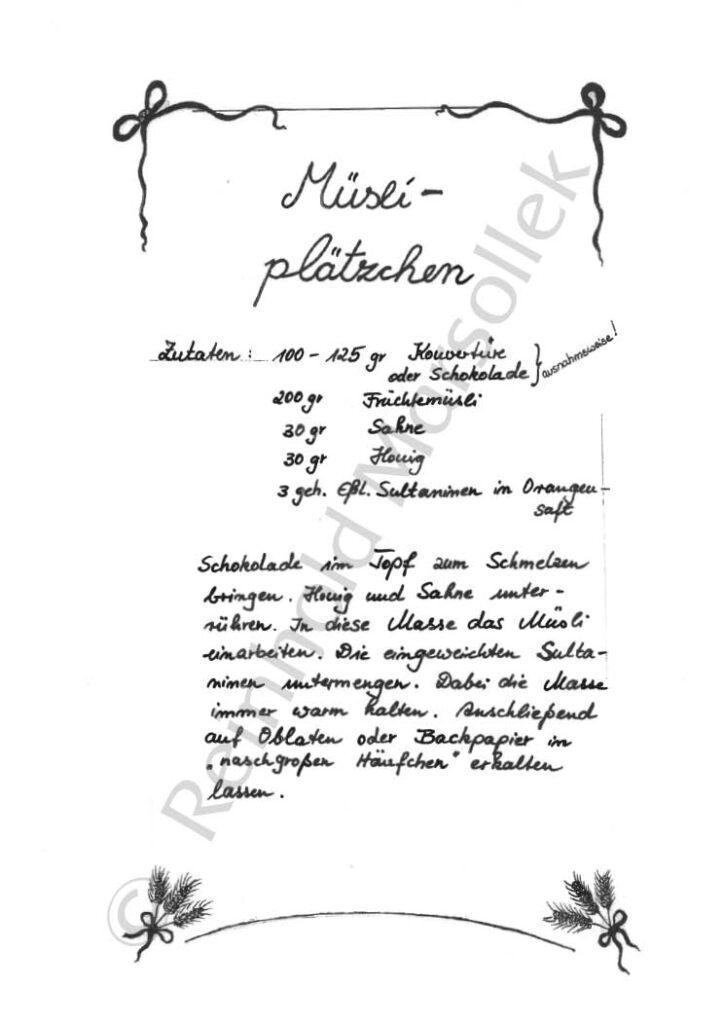 Müsli-
plätzchen
Zutaten: 100-125 gr Kouvertüre
oder Schokolade } ausnahmsweise!
200 gr Früchtemüsli
30 gr Sahne
30 gr Honig
3 geh. Eßl. Sultaninen in Orangen-
saft
Schokolade im Topf zum Schmelzen
bringen. Honig und Sahne unter-
rühren. In diese Masse das Müsli
einarbeiten. Die eingeweichten Sulta-
ninen untermengen. Dabei die Masse
immer warm halten. Anschließend
auf Oblaten oder Backpapier in
„naschgroßen Häufchen" erkalten
lassen.
© Reinhild Marsollek